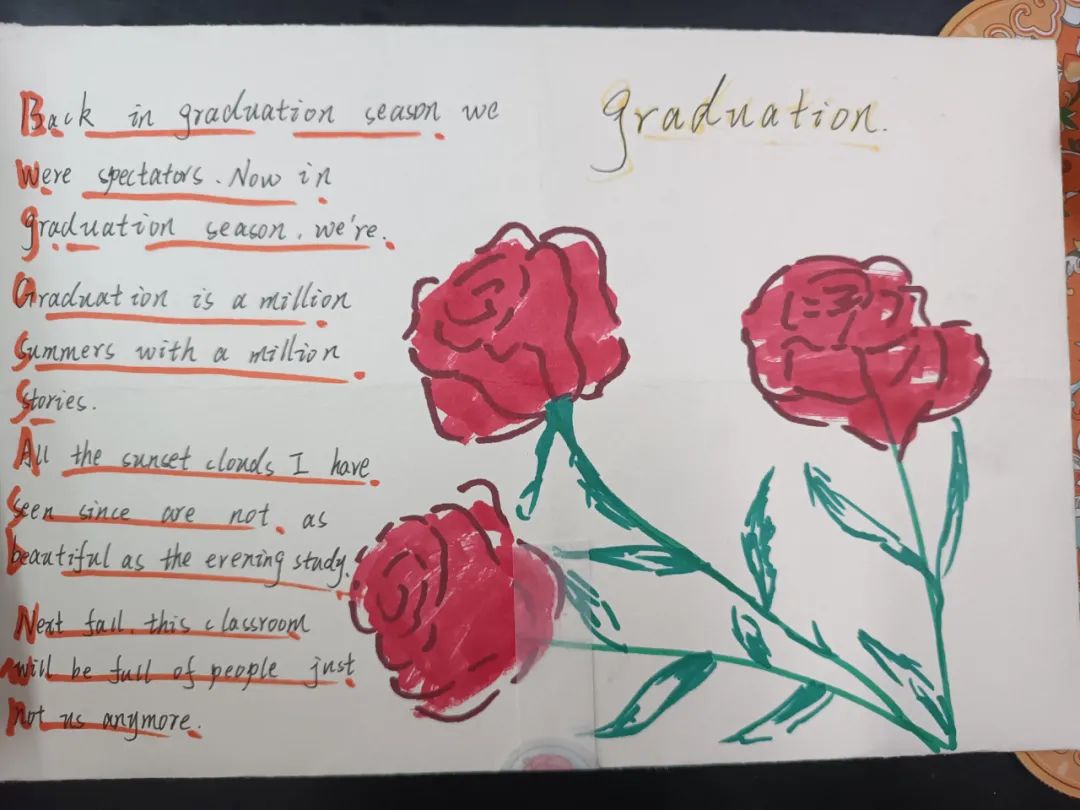 Back in graduation season we
were spectators. Now in
graduation season, we're.
Graduation is a million
Summers with a million
stories.
All the sunset clouds I have
seen since are not, as
beautiful as the evening study.
Next fall, this classroom
will be full of people just
not us anymore.
graduation.